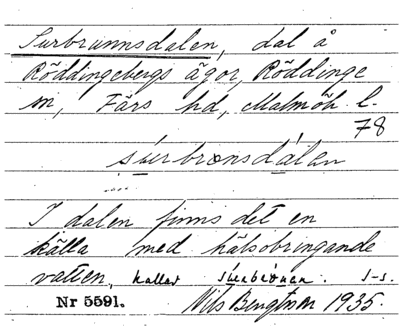 Surbrunnsdalen, dal å
Röddingebergs ägor, Röddinge
sn, Färs hd, Malmöh. l.
78
súrbronsdálan
I dalen finns det en
källa med hälsobringande
vatten, kallad surbronen. s-s.
Nr 5591. Nils Bengtsson 1935.